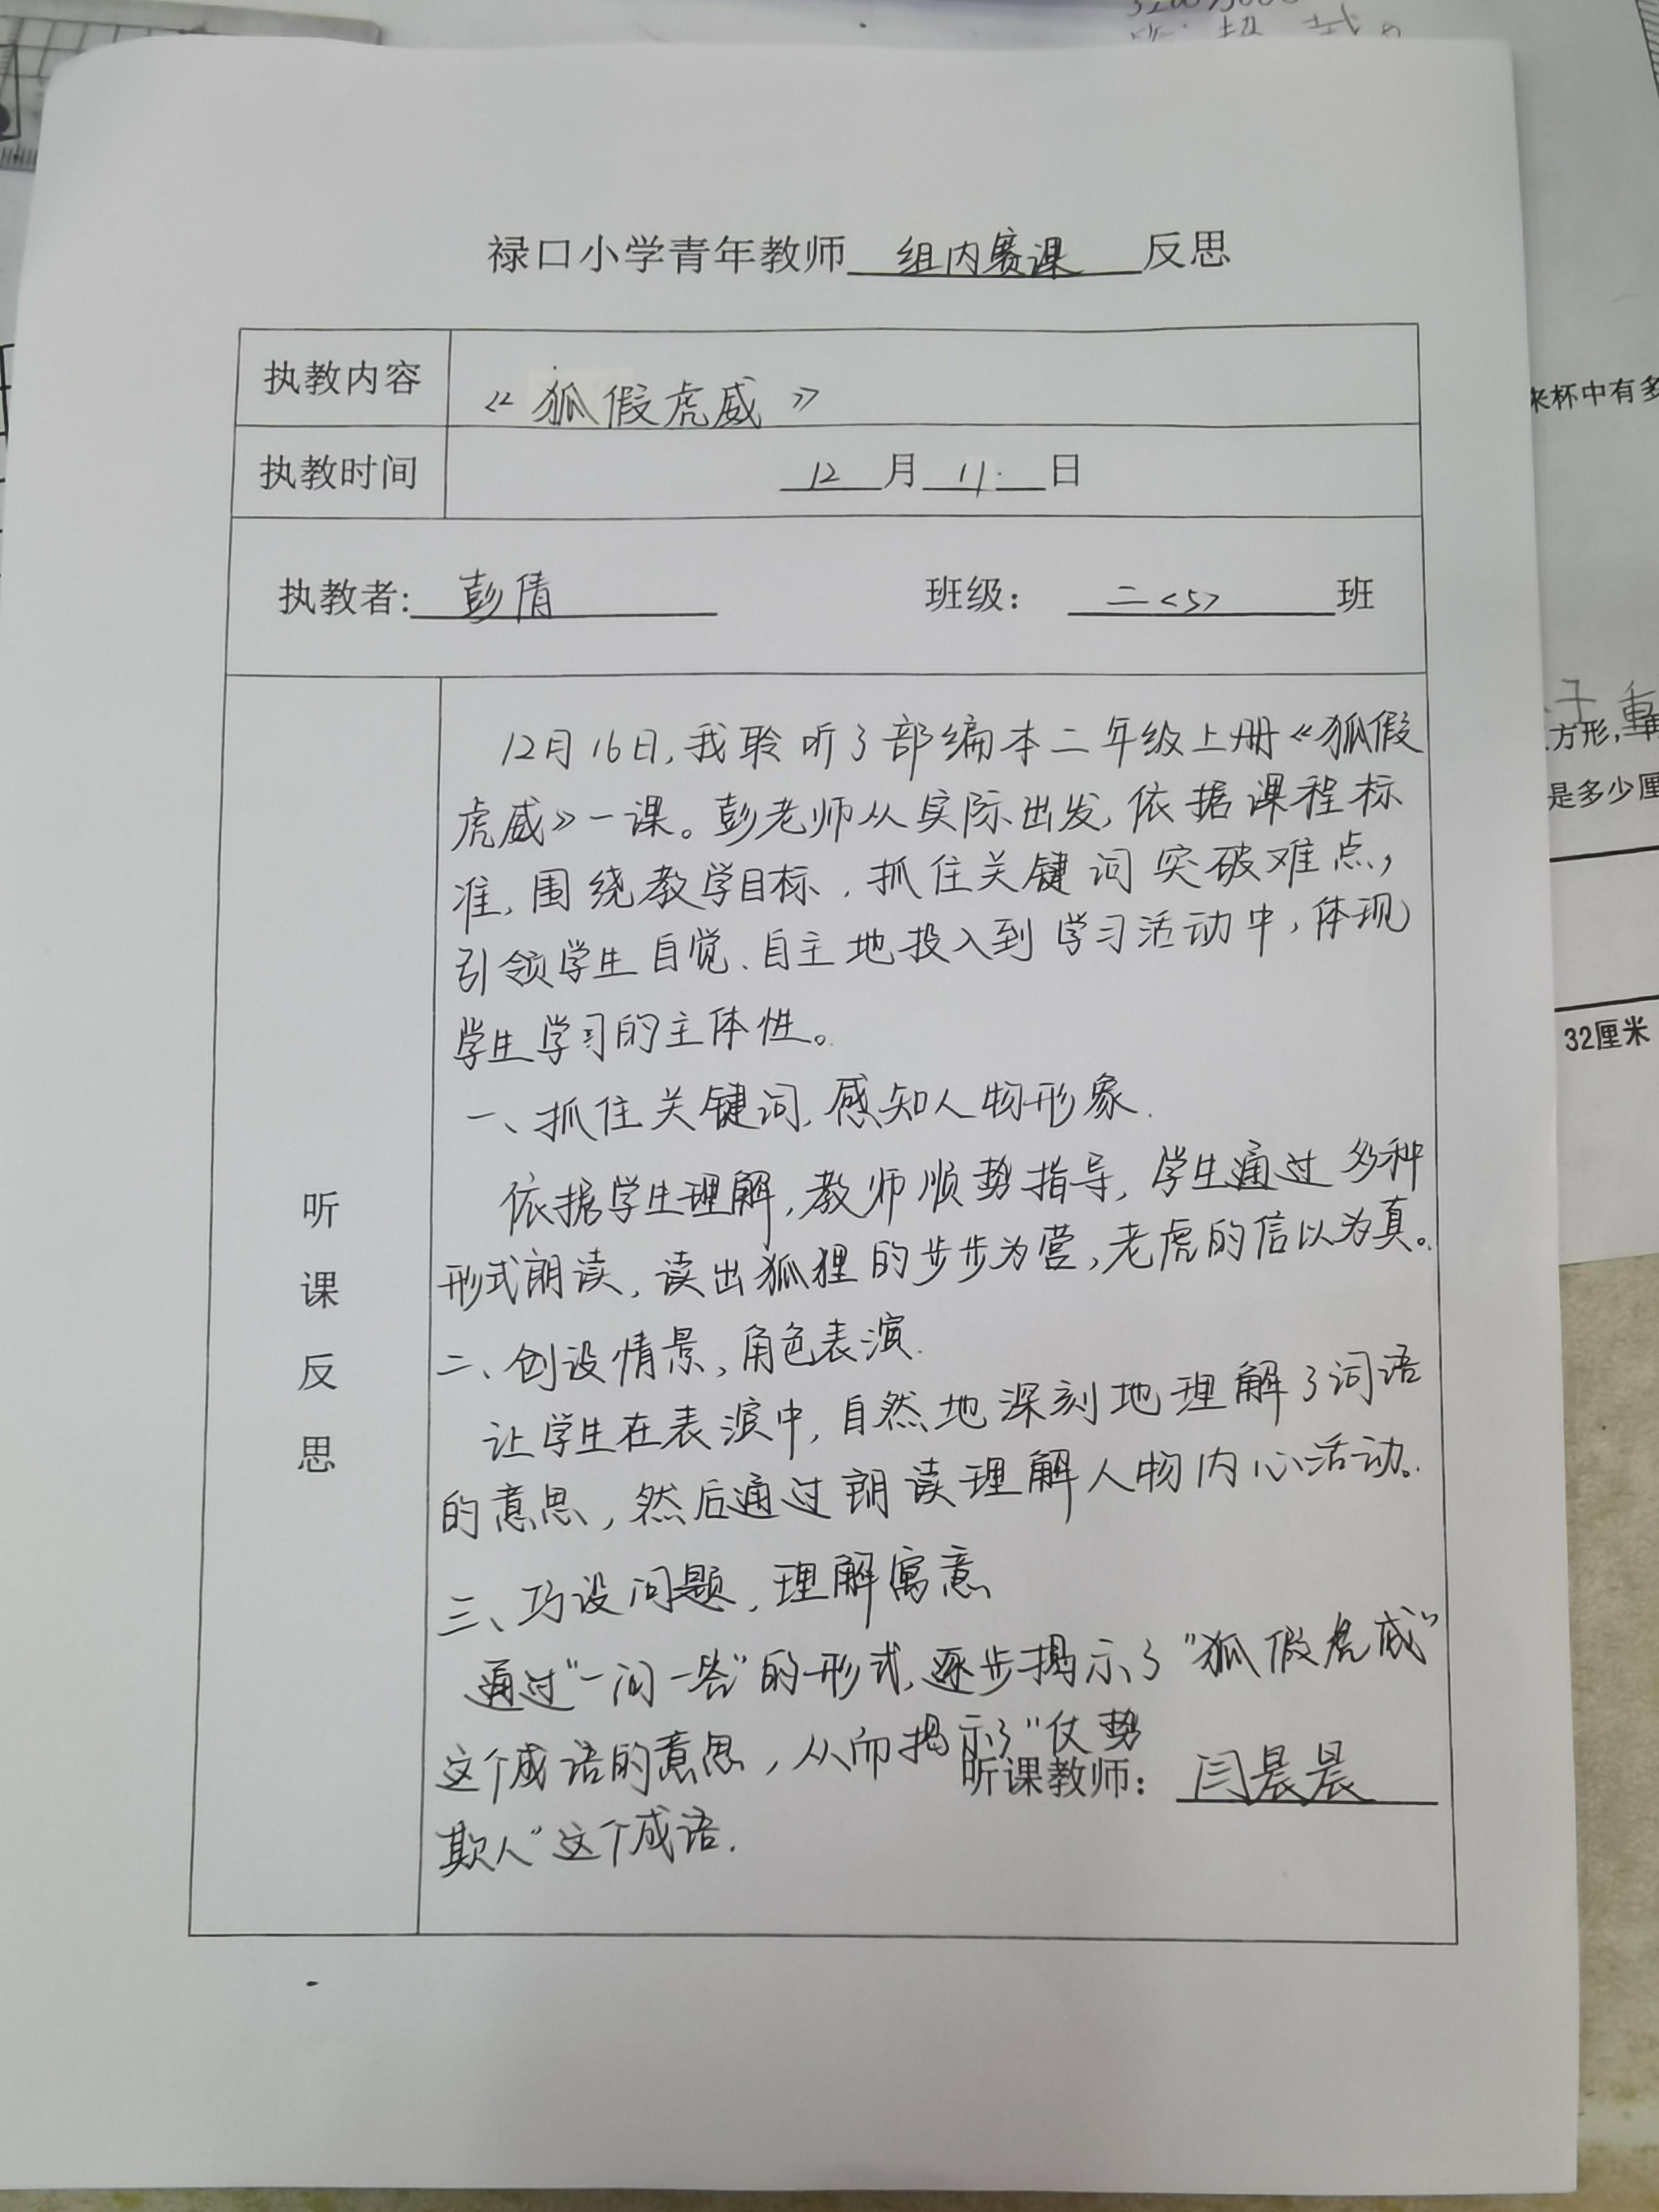 禄口小学青年教师 组内赛课 反思
执教内容 《狐假虎威》
执教时间 12 月 11 日
执教者: 彭倩 班级： 二<5> 班
听课反思
12月16日,我聆听了部编本二年级上册《狐假
虎威》一课。彭老师从实际出发,依据课程标
准,围绕教学目标,抓住关键词突破难点,
引领学生自觉、自主地投入到学习活动中,体现
学生学习的主体性。
一、抓住关键词,感知人物形象.
依据学生理解,教师顺势指导,学生通过多种
形式朗读,读出狐狸的步步为营,老虎的信以为真。
二、创设情景,角色表演.
让学生在表演中,自然地深刻地理解了词语
的意思,然后通过朗读理解人物内心活动。
三、巧设问题,理解寓意
通过"一问一答"的形式,逐步揭示了"狐假虎威"
这个成语的意思,从而揭示了"仗势
听课教师： 闫晨晨
欺人"这个成语.
来杯中有多
子重
方形,再
是多少厘
32厘米